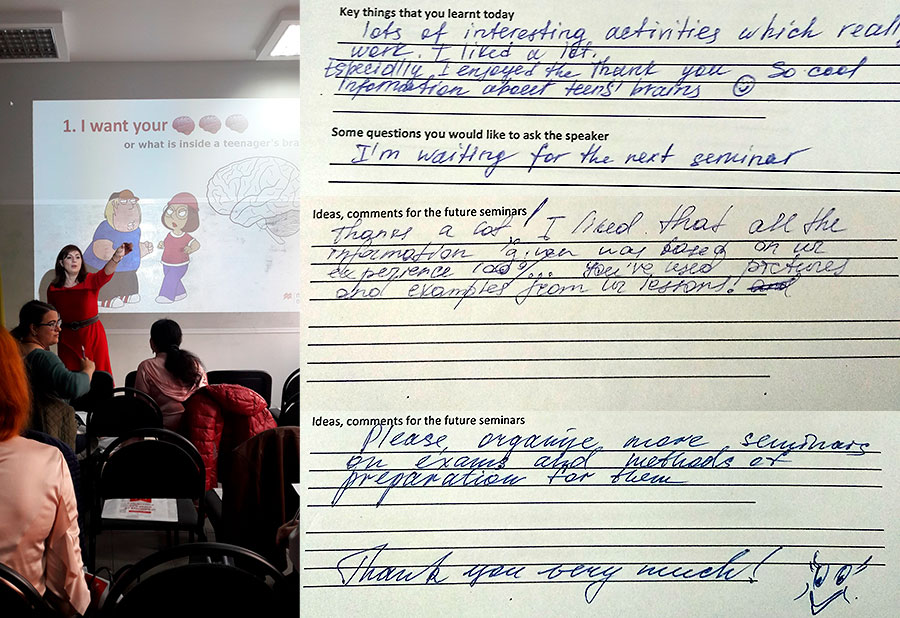 1. I want your
or what is inside a teenager's bra
Key things that you learnt today
lots of interesting activities which really
work. I liked a lot.
Especially I enjoyed the thank you So cool
information about teens' brains
Some questions you would like to ask the speaker
I'm waiting for the next seminar
Ideas, comments for the future seminars
Thanks a lot! I liked that all the
information given was based on ur
experience You've used pictures
and examples from ur lessons!
Ideas, comments for the future seminars
Please, organize more seminars
on exams and methods of
preparation for them
Thank you very much!